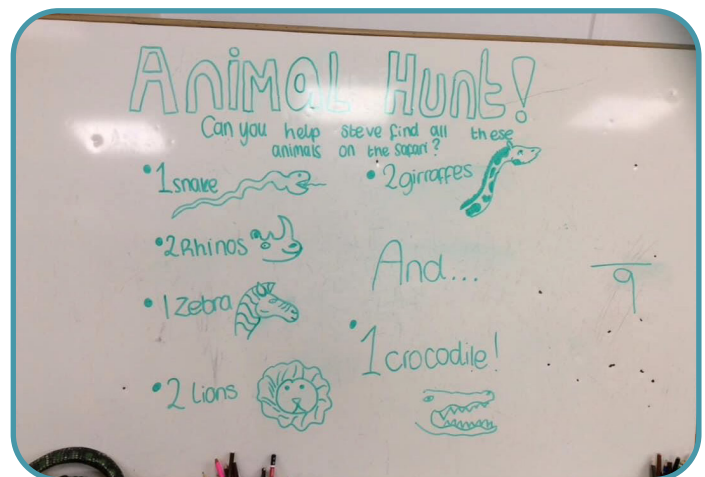 Animal Hunt!
Can you help Steve find all these
animals on the safari?
• 1 snake
• 2 Rhinos
• 1 Zebra
• 2 Lions
• 2 girraffes
And...
• 1 crocodile!
9